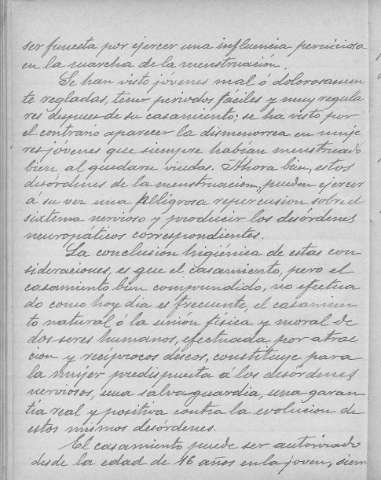 ser funesta por ejercer una influencia perniciosa
en la marcha de la menstruación.
Se han visto jóvenes mal ó dolorosamen
te regladas, tener periodos fáciles y muy regula
res despues de su casamiento; se ha visto por
el contrario aparecer la dismenorrea en muje
res jóvenes que siempre habían menstruado
bien al quedarse viudas. Ahora bien, estos
desórdenes de la menstruacion, pueden ejercer
á su vez una peligrosa repercusion sobre el
sistema nervioso y producir los desórdenes
neuropáticos correspondientes.
La conclusión higiénica de estas con
sideraciones, es que el casamiento, pero el
casamiento bien comprendido, no efectua
do como hoy dia es frecuente, el casamien
to natural ó la unión física y moral de
dos seres humanos, efectuada por atrac
cion y recíprocos deseos, constituye para
la mujer predispuesta á los desórdenes
nerviosos, una salva-guardia, una garan
tía real y positiva contra la evolucion de
estos mismos desórdenes.
El casamiento puede ser autorizado
desde la edad de 16 años en la joven, siem